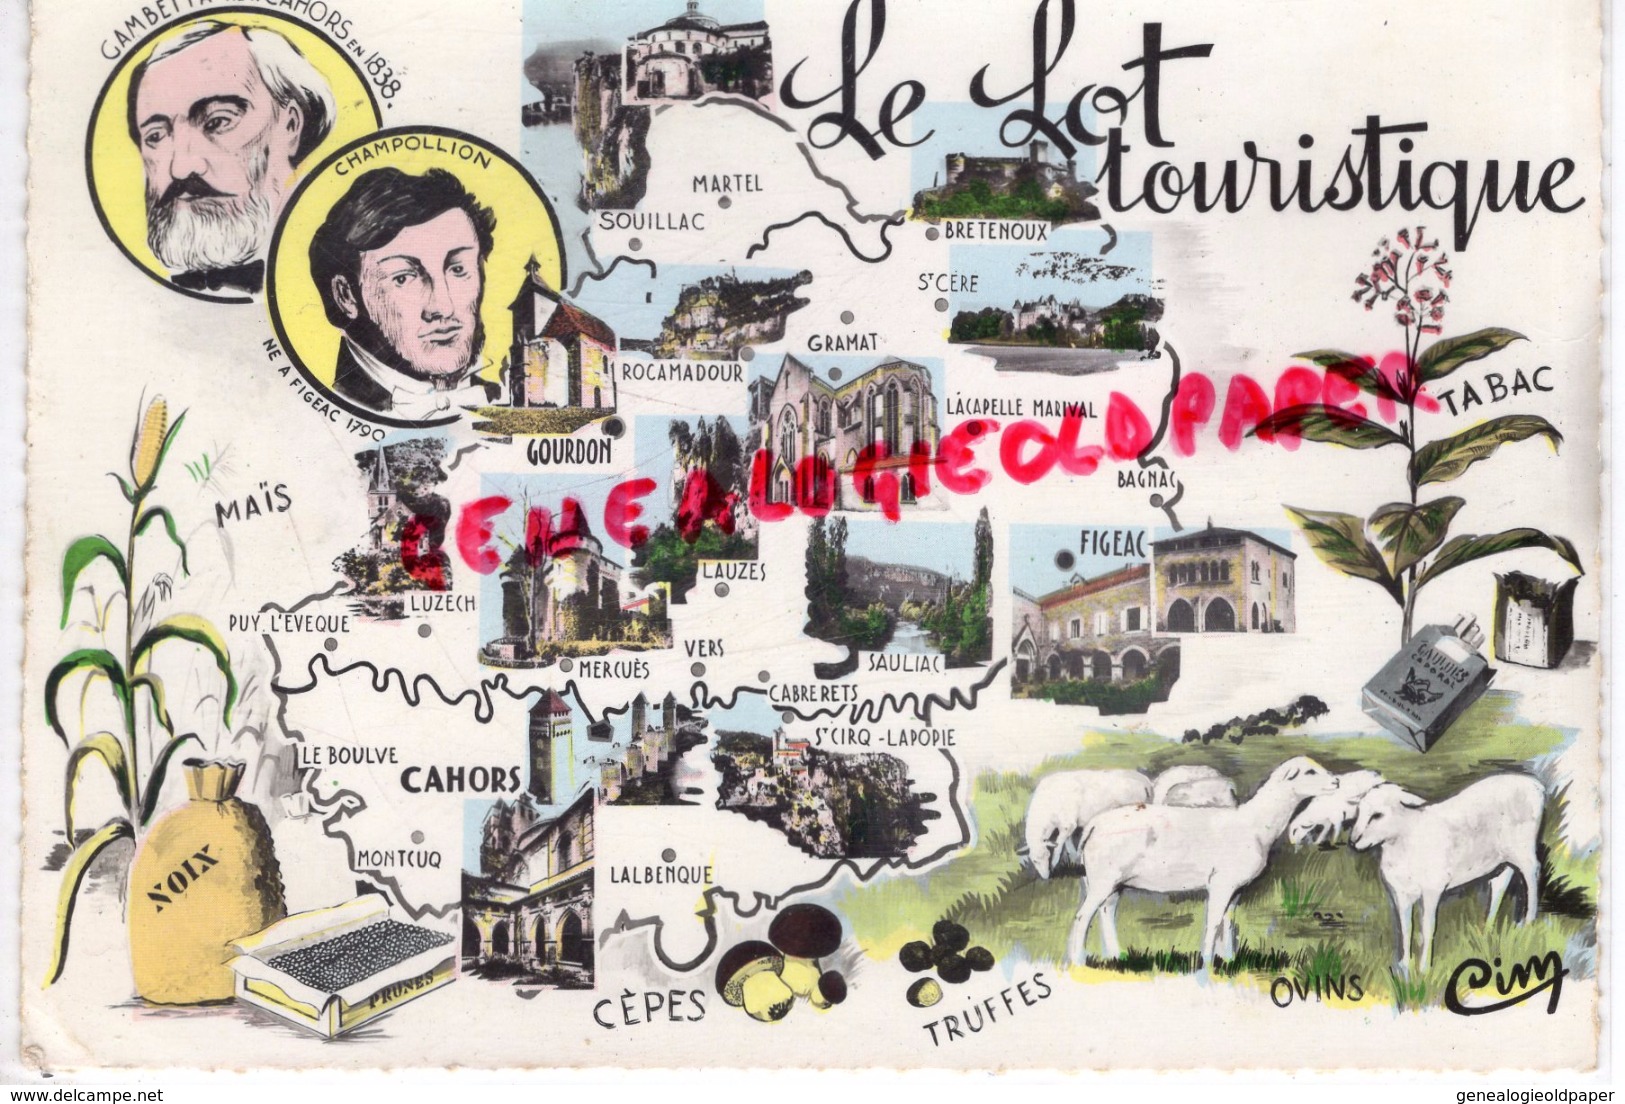 GAMBETTA
CAHORS EN 1838.
CHAMPOLLION
NE A FIGEAC 1790
Le Lot
touristique
MARTEL
SOUILLAC
BRETENOUX
ST CÉRÉ
GRAMAT
ROCAMADOUR
LACAPELLE MARIVAL
GOURDON
GENEALOGIEOLDPAPER
TABAC
BAGNAC
MAÏS
FIGEAC
LAUZES
LUZECH
PUY. L'EVEQUE
VERS
SAULIAC
MERCUÈS
CABRERETS
GAULOISES
CAPORAL
ST CIRQ-LAPOPIE
LE BOULVE
CAHORS
MONTCUQ
LALBENQUE
NOIX
PRUNES
CÈPES
TRUFFES
OVINS
Cim
genealogieoldpaper